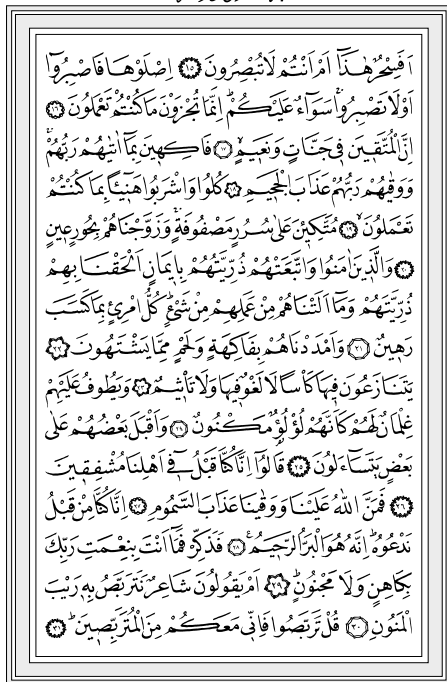 اَفَسِحْرٌ هٰذَٓا اَمْ اَنْتُمْ لَا تُبْصِرُونَ ﴿١٥﴾ اِصْلَوْهَا فَاصْبِرُٓوا
اَوْ لَا تَصْبِرُواۚ سَوَٓاءٌ عَلَيْكُمْۜ اِنَّمَا تُجْزَوْنَ مَا كُنْتُمْ تَعْمَلُونَ ﴿١٦﴾
اِنَّ الْمُتَّق۪ينَ ف۪ي جَنَّاتٍ وَنَع۪يمٍۙ ﴿١٧﴾ فَاكِه۪ينَ بِمَٓا اٰتٰيهُمْ رَبُّهُمْۚ
وَوَقٰيهُمْ رَبُّهُمْ عَذَابَ الْجَح۪يمِ ﴿١٨﴾ كُلُوا وَاشْرَبُوا هَن۪ٓيـًٔا بِمَا كُنْتُمْ
تَعْمَلُونَۙ ﴿١٩﴾ مُتَّكِـ۪ٔينَ عَلٰى سُرُرٍ مَصْفُوفَةٍۚ وَزَوَّجْنَاهُمْ بِحُورٍ ع۪ينٍ
﴿٢٠﴾ وَالَّذ۪ينَ اٰمَنُوا وَاتَّبَعَتْهُمْ ذُرِّيَّتُهُمْ بِا۪يمَانٍ اَلْحَقْنَا بِهِمْ
ذُرِّيَّتَهُمْ وَمَٓا اَلَتْنَاهُمْ مِنْ عَمَلِهِمْ مِنْ شَيْءٍۜ كُلُّ امْرِئٍ بِمَا كَسَبَ
رَه۪ينٌ ﴿٢١﴾ وَاَمْدَدْنَاهُمْ بِفَاكِهَةٍ وَلَحْمٍ مِمَّا يَشْتَهُونَ ﴿٢٢﴾
يَتَنَازَعُونَ ف۪يهَا كَأْسًا لَا لَغْوٌ ف۪يهَا وَلَا تَأْث۪يمٌ ﴿٢٣﴾ وَيَطُوفُ عَلَيْهِمْ
غِلْمَانٌ لَهُمْ كَاَنَّهُمْ لُؤْلُؤٌ مَكْنُونٌ ﴿٢٤﴾ وَاَقْبَلَ بَعْضُهُمْ عَلٰى
بَعْضٍ يَتَسَٓاءَلُونَ ﴿٢٥﴾ قَالُٓوا اِنَّا كُنَّا قَبْلُ ف۪ٓي اَهْلِنَا مُشْفِق۪ينَ
﴿٢٦﴾ فَمَنَّ اللّٰهُ عَلَيْنَا وَوَقٰينَا عَذَابَ السَّمُومِ ﴿٢٧﴾ اِنَّا كُنَّا مِنْ قَبْلُ
نَدْعُوهُۜ اِنَّهُ هُوَ الْبَرُّ الرَّح۪يمُ۟ ﴿٢٨﴾ فَذَكِّرْ فَمَٓا اَنْتَ بِنِعْمَتِ رَبِّكَ
بِكَاهِنٍ وَلَا مَجْنُونٍۜ ﴿٢٩﴾ اَمْ يَقُولُونَ شَاعِرٌ نَتَرَبَّصُ بِه۪ رَيْبَ
الْمَنُونِ ﴿٣٠﴾ قُلْ تَرَبَّصُوا فَاِنّ۪ي مَعَكُمْ مِنَ الْمُتَرَبِّص۪ينَۜ ﴿٣١﴾